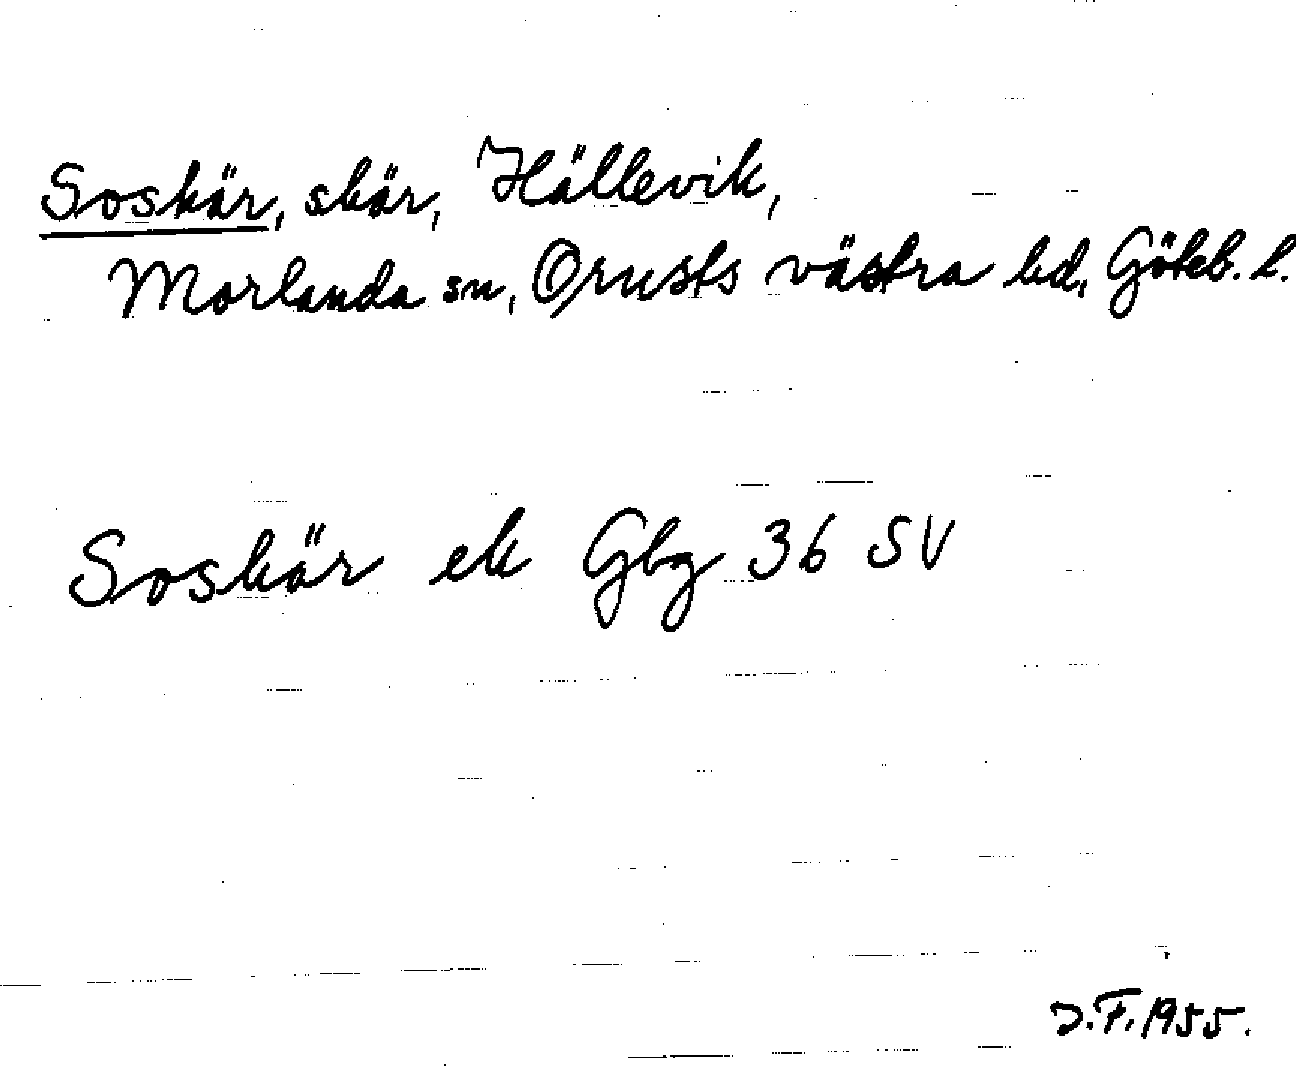 Soskär, skär, Hällevik,
Morlanda sn, Orusts västra hd, Göteb. l.
Soskär ek Gbg 36 SV
J.F. 1955.